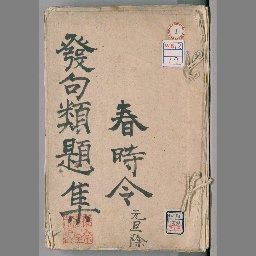 春時令
元旦除
發句類題集